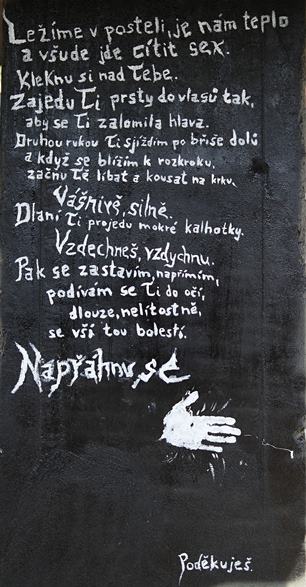 Ležíme v posteli, je nám teplo
a všude jde cítit sex.
Kleknu si nad Tebe.
Zajedu Ti prsty do vlasů tak,
aby se Ti zalomila hlava.
Druhou rukou Ti sjíždím po břiše dolů
a když se blížím k rozkroku,
začnu Tě líbat a kousat na krku.
Vášnivě, silně.
Dlaní Ti projedu mokré kalhotky.
Vzdechneš, vzdychnu.
Pak se zastavím, napřímím,
podívám se Ti do očí,
dlouze, nelítostně,
se vší tou bolestí.
Napřáhnu se
Poděkuješ.